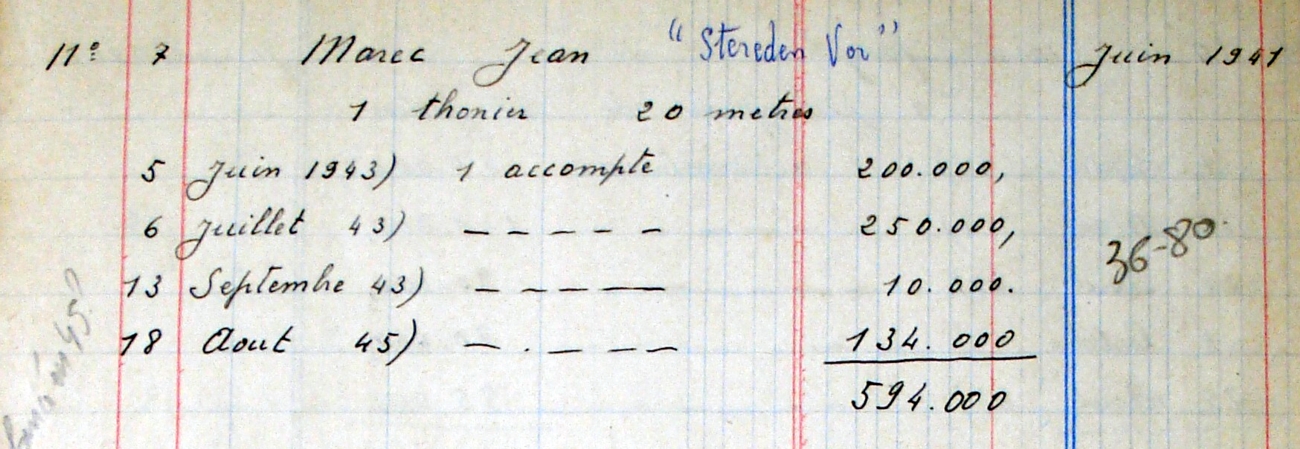 N° 7 Marec Jean "Stereden Vor" Juin 1941
1 thonier 20 metres
5 Juin 1943) 1 accompte 200.000,
6 Juillet 43) – – – – – 250.000,
13 Septembre 43) – – – — 10.000.
36-80
18 Aout 45) – . – – – 134.000
594.000
45?